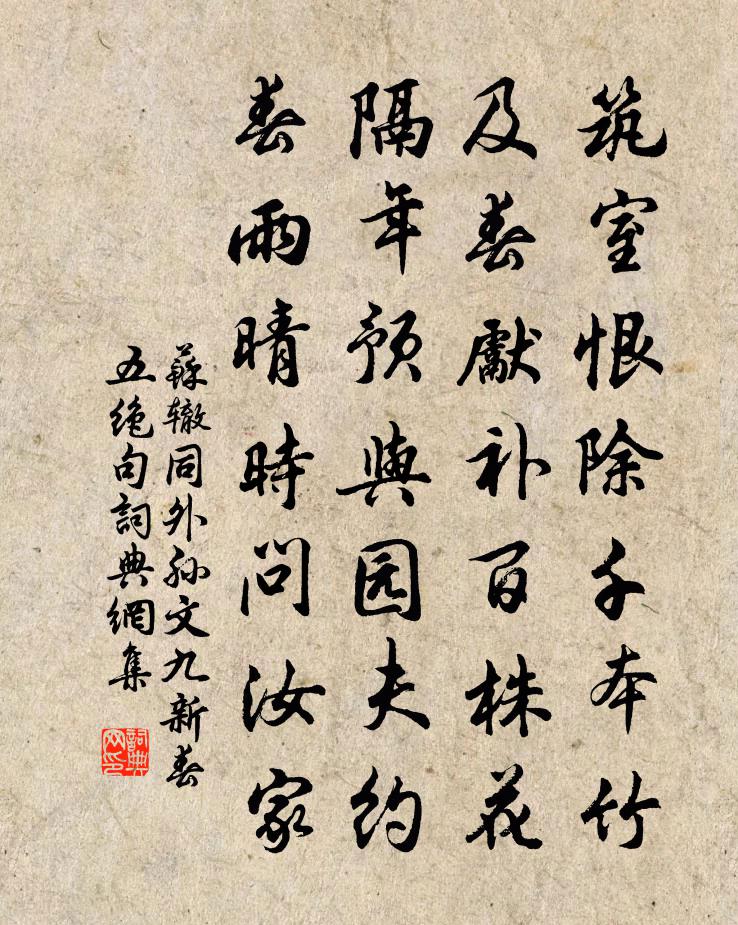 筑室恨除千本竹
及春獻补百株花
隔年预與园夫约
春雨晴時问汝家
蘇辙同外孙文九新春
五绝句詞典網集
詞典
网印